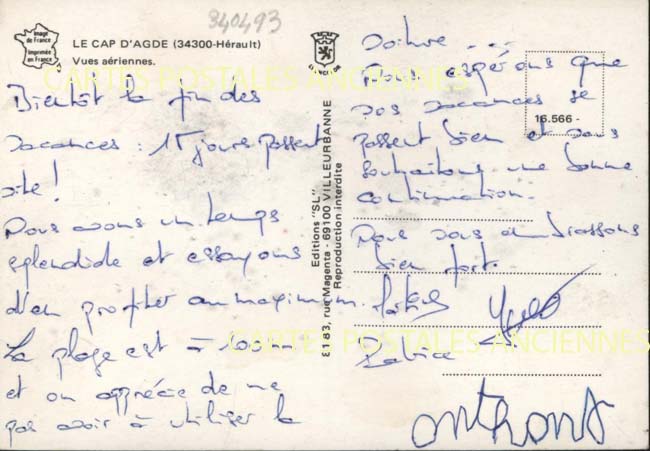 340493
Image
de France
Imprimée
en France
LE CAP D'AGDE (34300-Hérault)
Vues aériennes.
CARTES POSTALES ANCIENNES
Bientôt la fin des
vacances : 15 jours passent
vite !
Nous avons un temps
splendide et essayons
d'en profiter au maximum.
La plage est à 100 m
et on apprécie de ne
pas avoir à utiliser la
Editions "SL"
£183, rue Magenta - 69100 VILLEURBANNE
Reproduction interdite
voiture ...
Nous espérons que
vos vacances se
passent bien et vous
souhaitons une bonne
continuation.
Nous vous embrassons
bien fort.
Patrice
16.566 -
CARTES POSTALES ANCIENNES
anthony